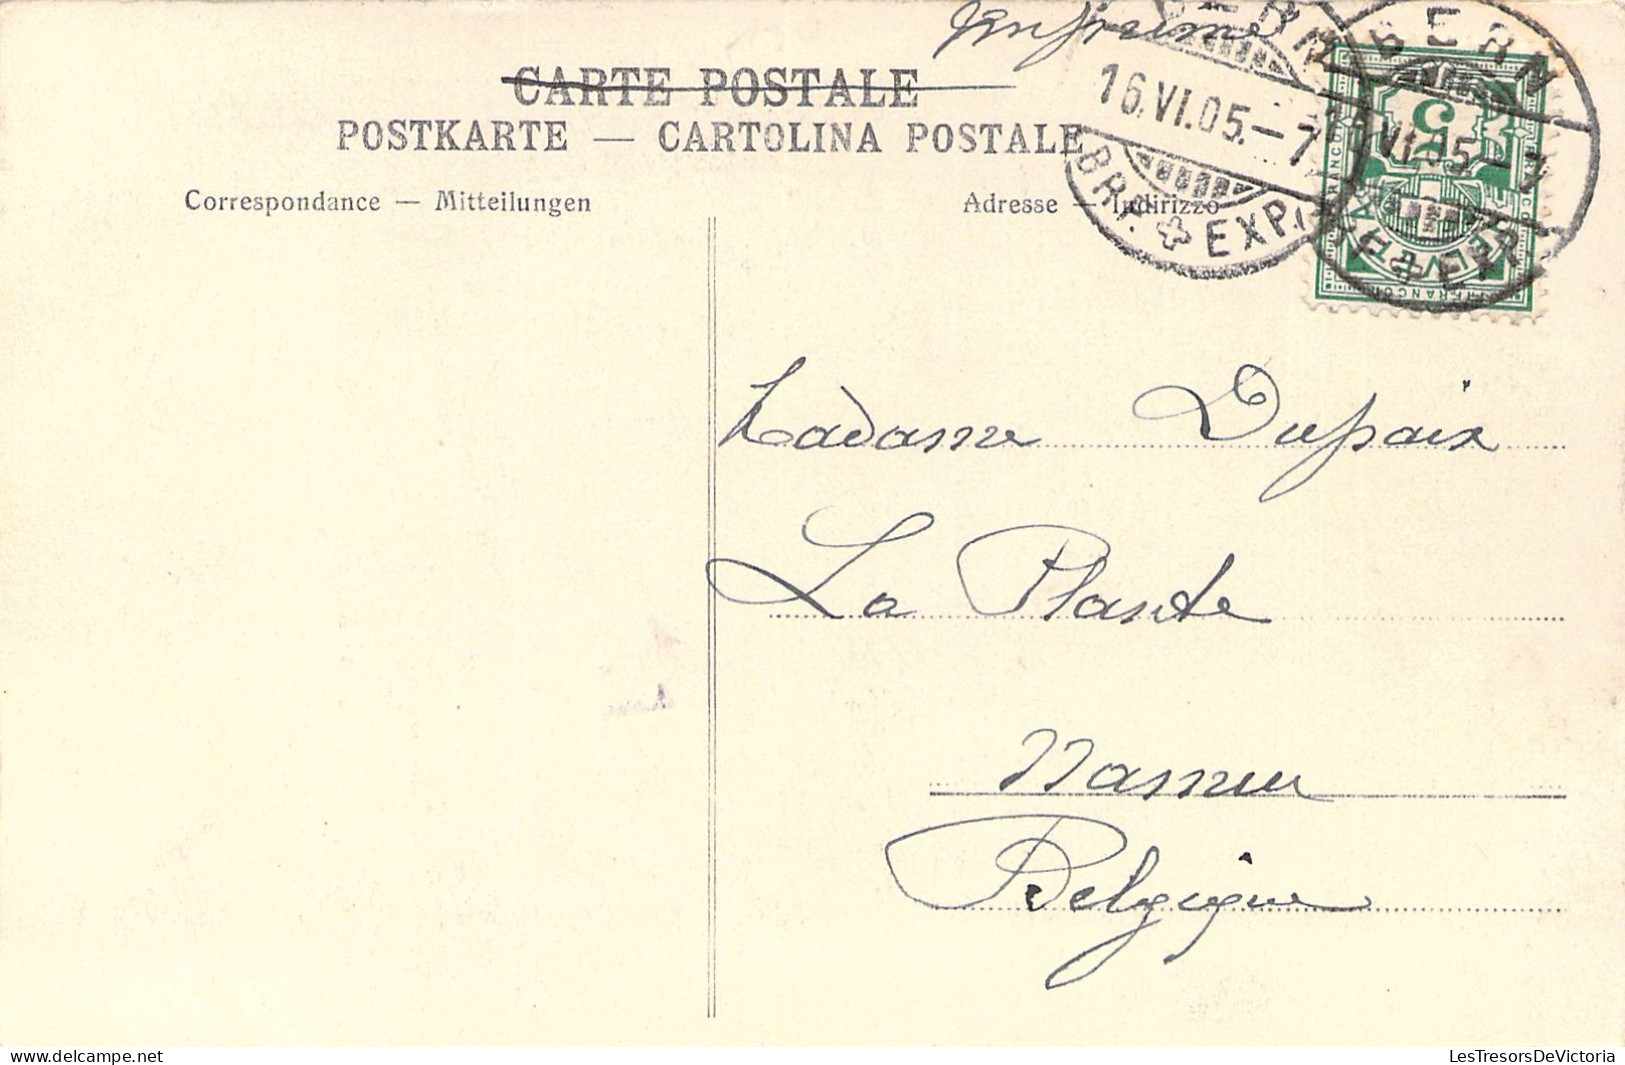 Imprimé
CARTE POSTALE
POSTKARTE — CARTOLINA POSTALE
Correspondance — Mitteilungen
Adresse — Indirizzo
BERN
16.VI.05.–7
BRF. EXP.
BERN
VI.05–7
EXP.
FRANCO
HELVETIA
5
Madame Dupaix
La Plante
Namur
Belgique
LesTresorsDeVictoria
www.delcampe.net